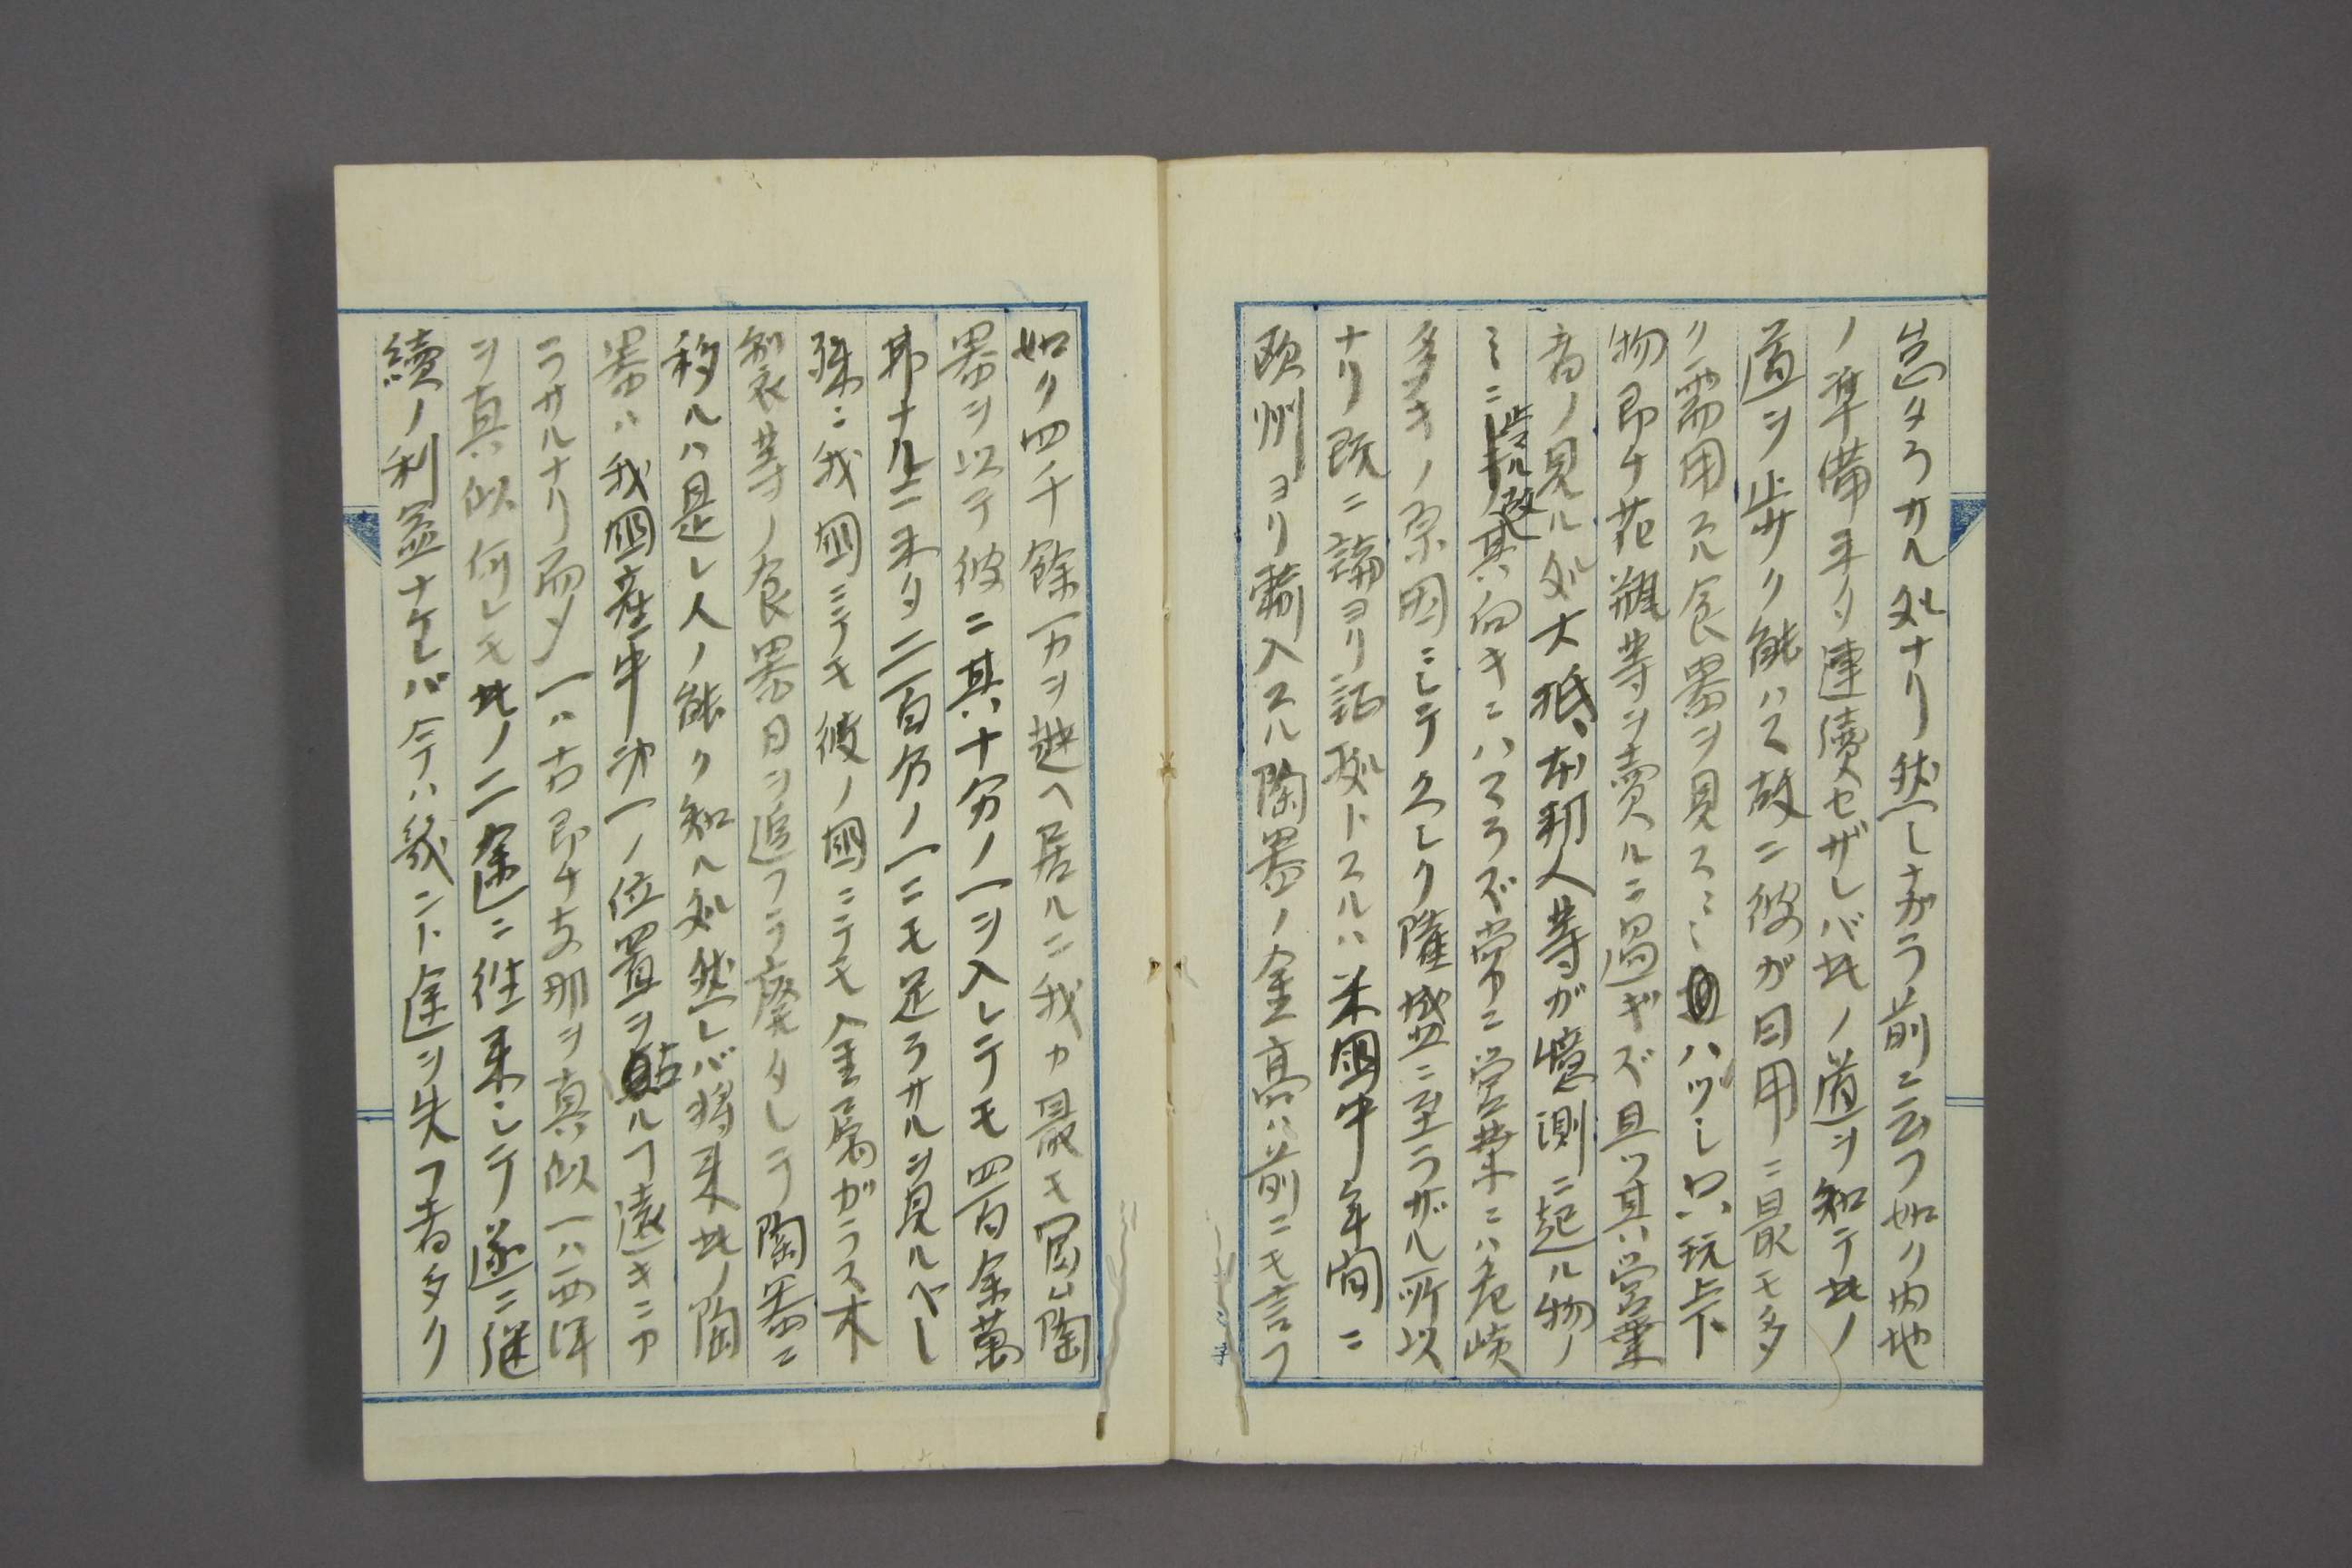 怠タラサル処ナリ然シナガラ前ニ云フ如ク内地
ノ準備来タ連續セザレバ此ノ道ヲ知テ此ノ
道ヲ歩サク能ハス故ニ彼ガ日用ニ最モ多
ク需用スル食器ヲ見ス ハツシ只玩上下
物即チ花瓶等ヲ賣ルニ過ギズ且ツ其営業
者ノ見ル処大抵本邦人等ガ憶測ニ起ル物ノ
ミニ止マル故其向キニハマラズ常ニ営業ニハ危崄
多キノ原因ニシテ久シク隆盛ニ至ラザル所以
ナリ既ニ論ヨリ証拠トスルハ米國中年間ニ
欧州ヨリ輸入スル陶器ノ金高ハ前ニモ言フ
如ク四千餘万ヲ越ヘ居ルニ我カ最モ冨ム陶
器ヲ以テ彼ニ其十分ノ一ヲ入レテモ四百余萬
弗ナルニ未タ二百分ノ一ニモ足ラサルヲ見ルベシ
殊ニ我國ニテモ彼ノ國ニテモ金属ガラス木
製等ノ食器日ヲ追フテ廃タレテ陶器ニ
移ルハ是レ人ノ能ク知ル処然レバ将来此ノ陶
器ハ我國産中第一ノ位置ヲ占ルヿ遠キニア
ラサルナリ而メ一ハ古即チ支那ヲ真似一ハ西洋
ヲ真似何レモ此ノ二途ニ往来シテ遂ニ継
續ノ利益ナケレバ今ハ幾ント途ヲ失フ者多ク